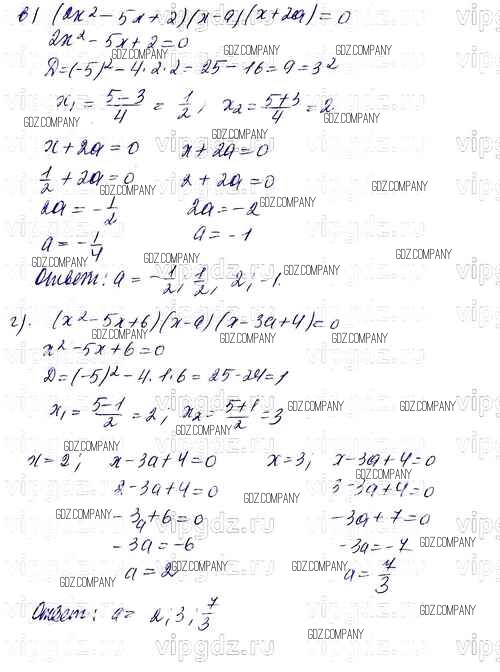 в) (2x² – 5x + 2)(x – a)(x + 2a) = 0
2x² – 5x + 2 = 0
D = (-5)² – 4·2·2 = 25 – 16 = 9 = 3²
x₁ = (5–3)/4 = 1/2, x₂ = (5+3)/4 = 2
x + 2a = 0 x + 2a = 0
1/2 + 2a = 0 2 + 2a = 0
2a = -1/2 2a = -2
a = -1/4 a = -1
Ответ: a = -1/2, 1/2, 2; -1.
г). (x² – 5x + 6)(x – a)(x – 3a + 4) = 0
x² – 5x + 6 = 0
D = (-5)² – 4·1·6 = 25 – 24 = 1
x₁ = (5–1)/2 = 2, x₂ = (5+1)/2 = 3
x = 2; x – 3a + 4 = 0 x = 3; x – 3a + 4 = 0
2 – 3a + 4 = 0 3 – 3a + 4 = 0
-3a + 6 = 0 -3a + 7 = 0
-3a = -6 -3a = -7
a = 2 a = 7/3
Ответ: a = 2; 3; 7/3
GDZ.COMPANY
vipgdz.ru